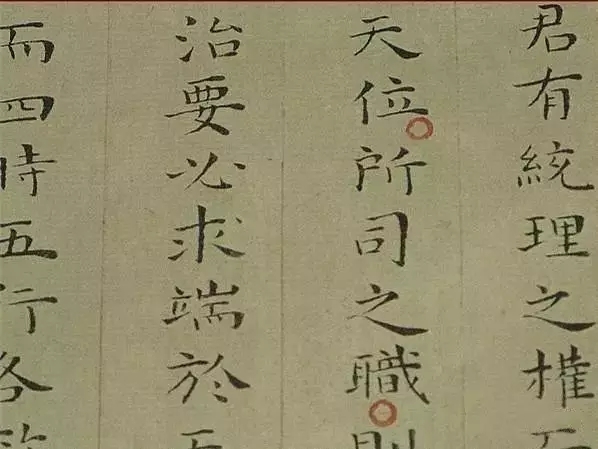 君有統理之權而
天位所司之職則
治要必求端於天
而四時五行各